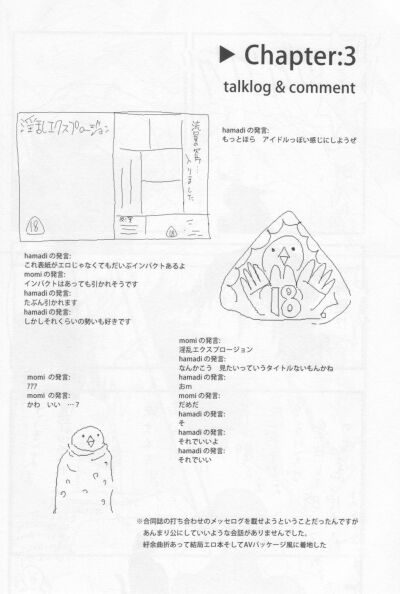 ▶ Chapter:3
talklog & comment
淫乱エクスプロージョン
入りました
18
18
hamadi の発言:
もっとほら　アイドルっぽい感じにしようぜ
18
hamadi の発言:
これ表紙がエロじゃなくてもだいぶインパクトあるよ
momi の発言:
インパクトはあっても引かれそうです
hamadi の発言:
たぶん引かれます
hamadi の発言:
しかしそれくらいの勢いも好きです
momi の発言:
淫乱エクスプロージョン
hamadi の発言:
なんかこう　見たいっていうタイトルないもんかね
hamadi の発言:
おm
momi の発言:
だめだ
hamadi の発言:
そ
hamadi の発言:
それでいいよ
hamadi の発言:
それでいい
momi の発言:
???
momi の発言:
かわ　いい　…?
※合同誌の打ち合わせのメッセログを載せようということだったんですが
あんまり公にしていいような会話がありませんでした。
紆余曲折あって結局エロ本そしてAVパッケージ風に着地した